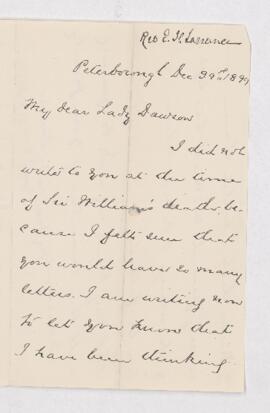 Rev E.
Peterborough Dec 29th 1899
My dear Lady Dawson
I did not
write to you at the time
of Sir William's death, be-
cause I felt sure that
you would have so many
letters. I am writing now
to let you know that
I have been thinking